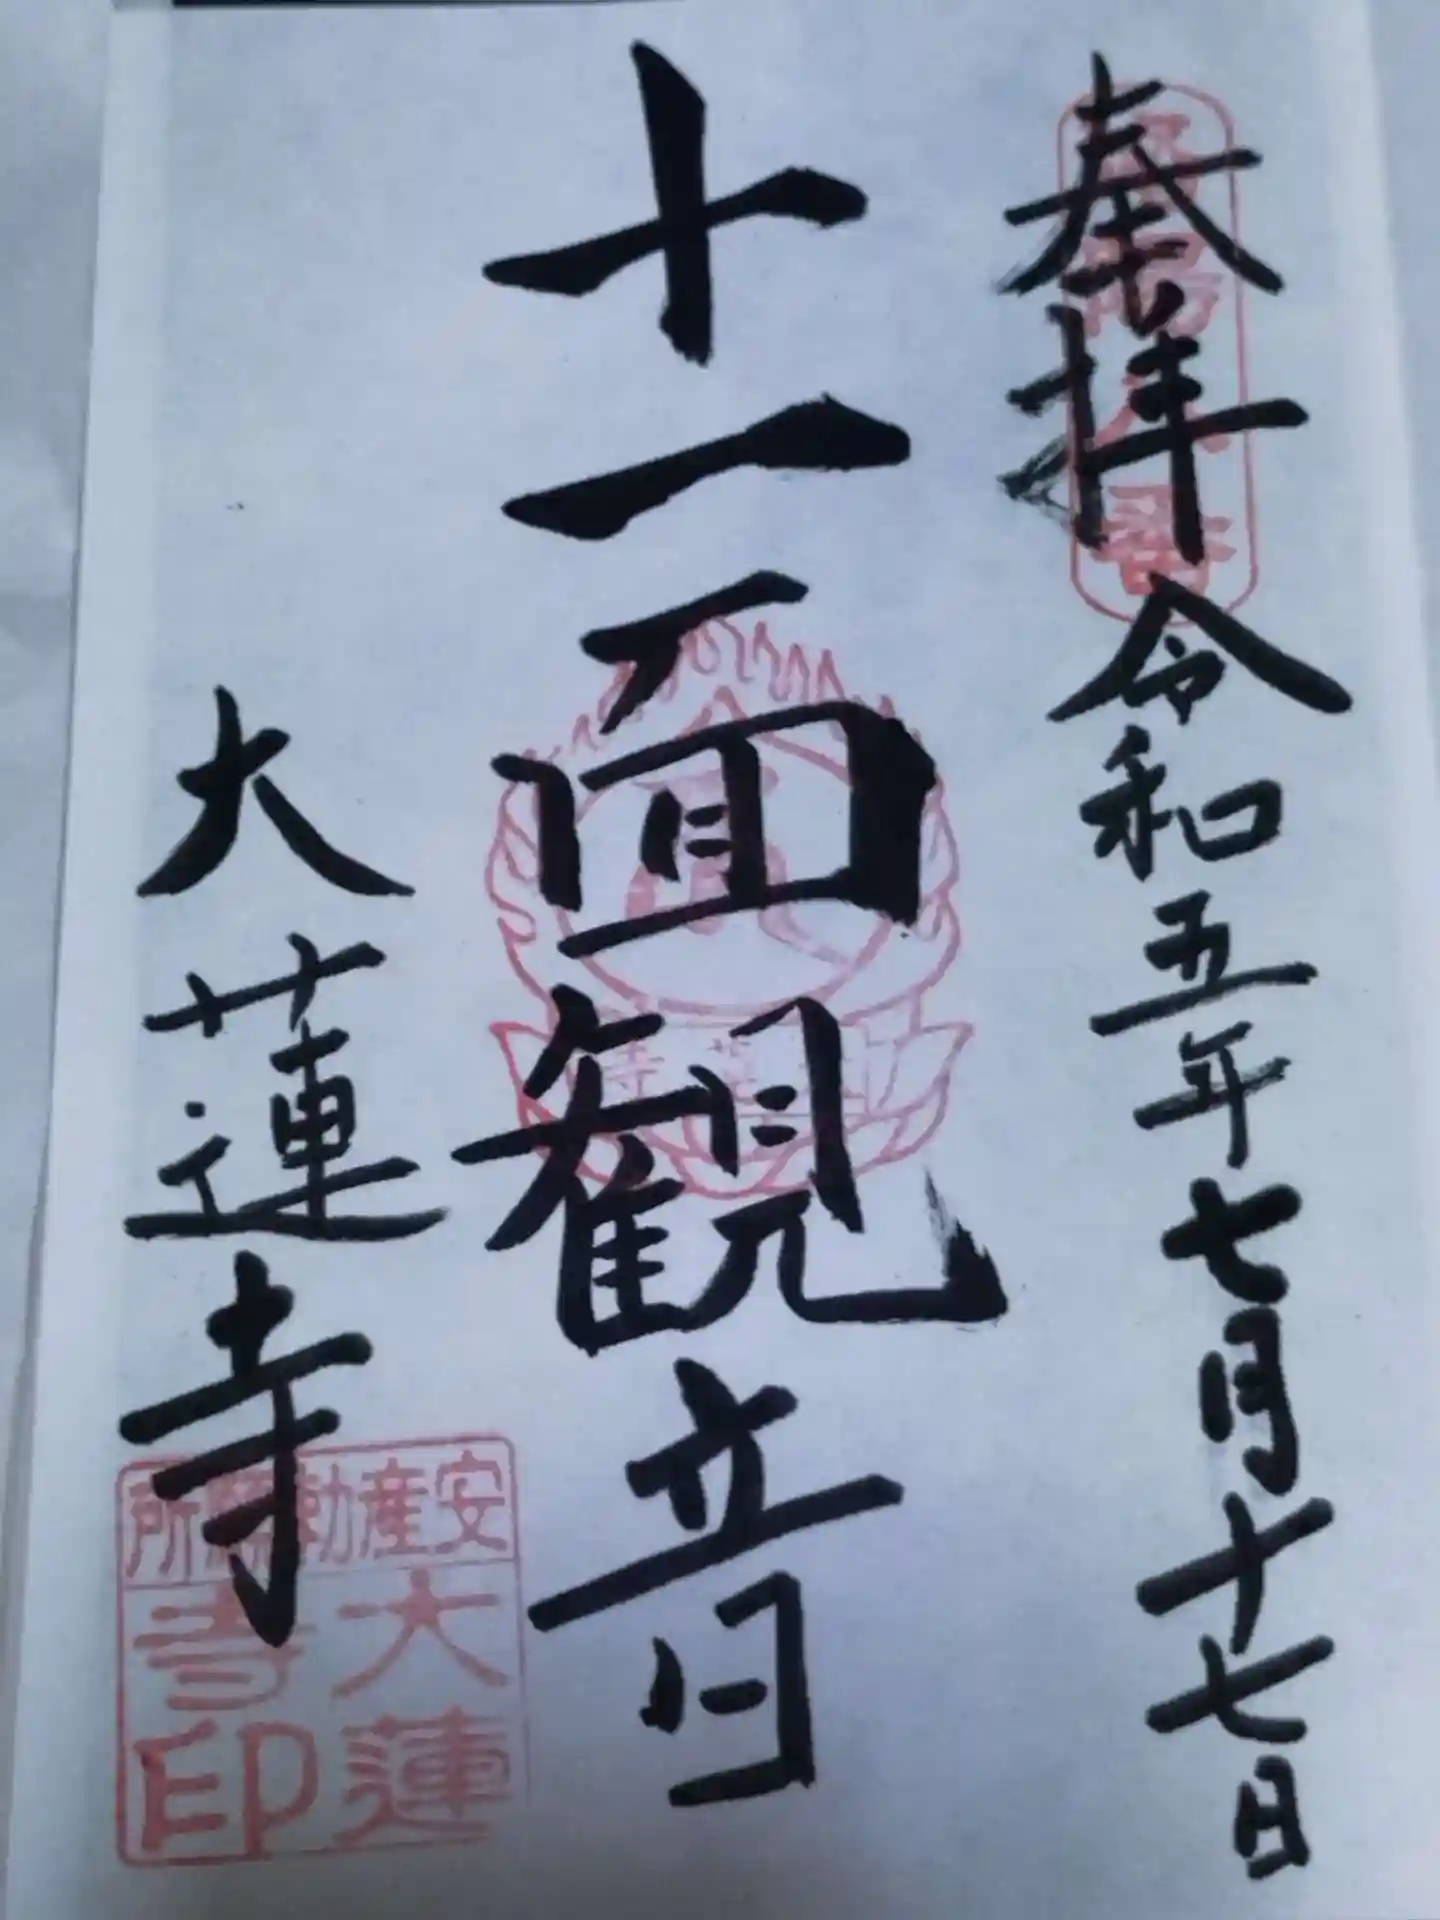 奉拝 令和五年七月十七日
十一面観音
大蓮寺
安産勅願所
大蓮寺印